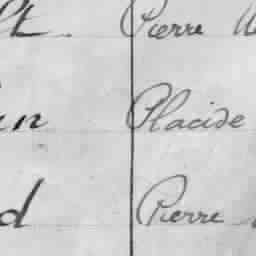 lt. Pierre
in Placide
d Pierre